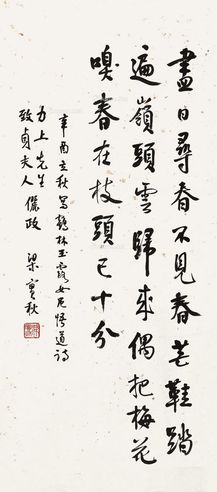 盡日尋春不見春芒鞋踏
遍嶺頭雲歸來偶把梅花
嗅春在枝頭已十分
辛酉立秋寫鶴林玉露女尼悟道詩
上先生
致貞夫人 儷政
梁實秋